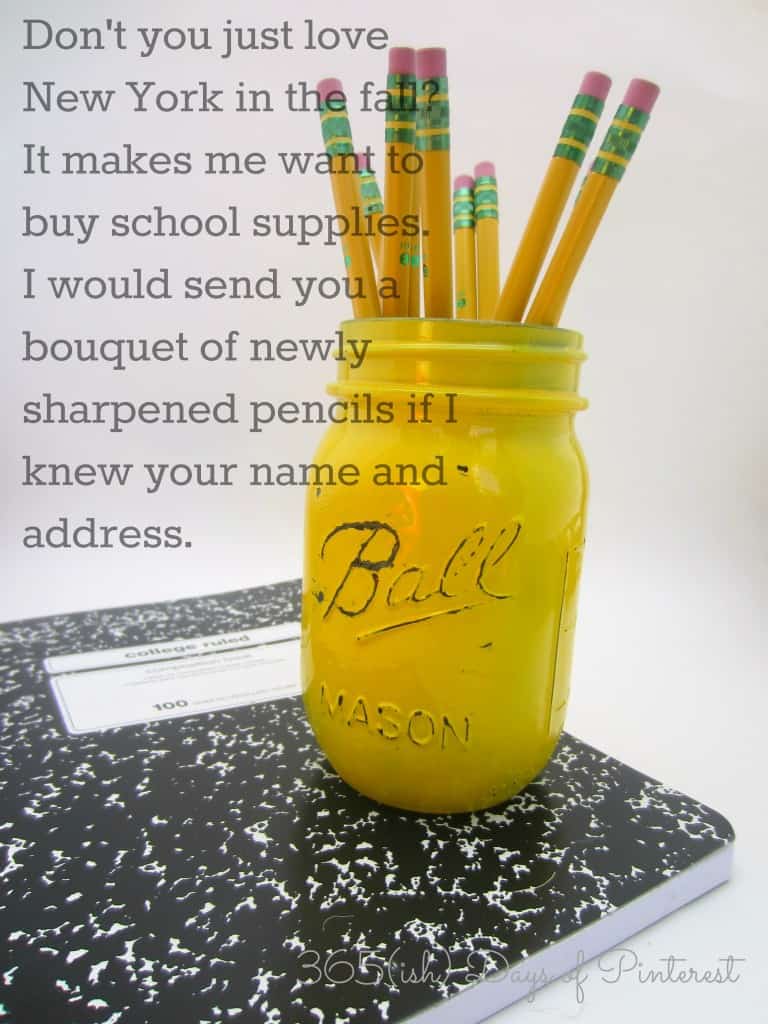 Don't you just love
New York in the fall?
It makes me want to
buy school supplies.
I would send you a
bouquet of newly
sharpened pencils if I
knew your name and
address.
Ball
MASON
college ruled
composition book
100
365(ish) Days of Pinterest